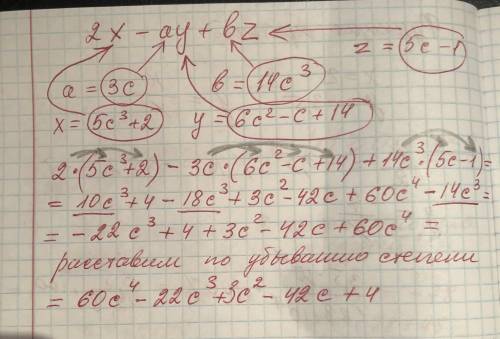 2x − ay + bz
z = 5c − 1
a = 3c
b = 14c³
x = 5c³+2
y = 6c² − c + 14
2·(5c³+2) − 3c·(6c²−c+14) + 14c³·(5c−1) =
= 10c³ + 4 − 18c³ + 3c² − 42c + 60c⁴ − 14c³ =
= −22c³ + 4 + 3c² − 42c + 60c⁴ =
расставим по убыванию степени
= 60c⁴ − 22c³ + 3c² − 42c + 4